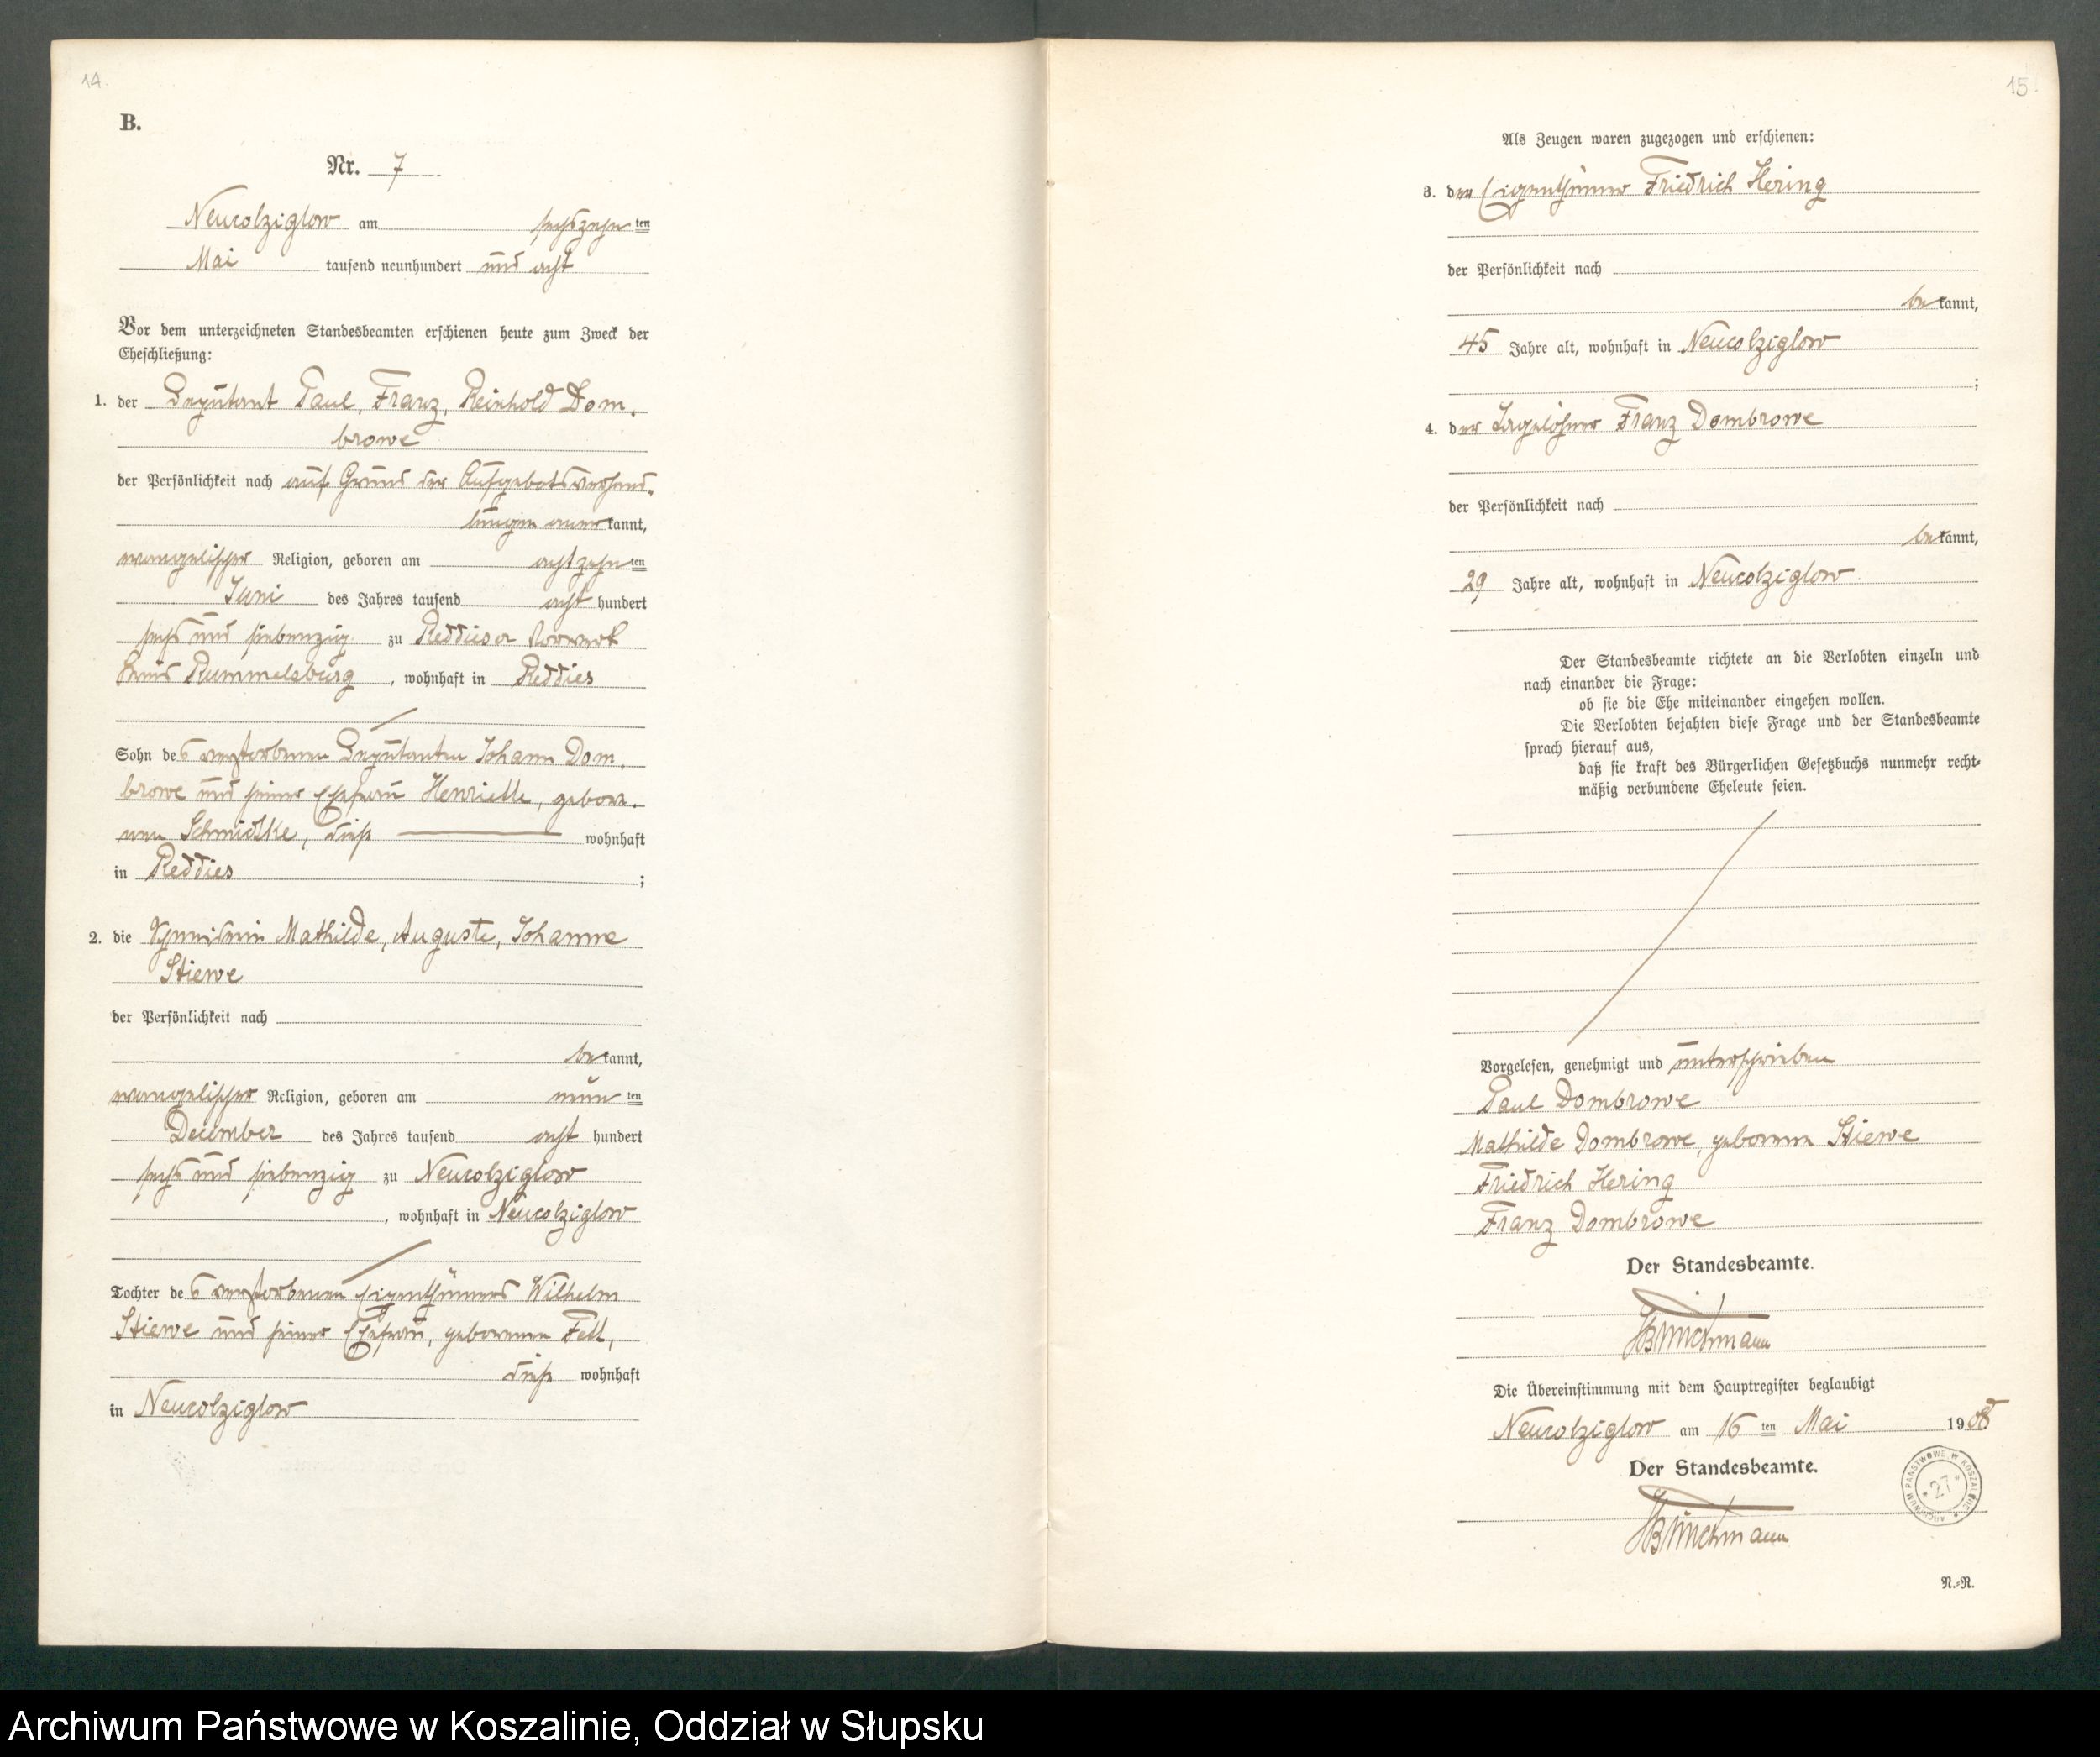 14.
B.
Nr. 7
Neucolziglow am sechszehn ten
Mai tausend neunhundert und acht
Vor dem unterzeichneten Standesbeamten erschienen heute zum Zweck der
Eheschließung:
1. der Deputant Paul, Franz, Reinhold Dom-
browe
der Persönlichkeit nach auf Grund der Aufgebotsverhand-
lungen anerkannt,
evangelischer Religion, geboren am achtzehn ten
Juni des Jahres tausend acht hundert
sechs und siebenzig zu Reddieser Vorwerk
Kreis Rummelsburg, wohnhaft in Reddies
Sohn des verstorbenen Deputanten Johann Dom-
browe und seiner Ehefrau Henriette, gebore-
nen Schmidtke, diese wohnhaft
in Reddies;
2. die Mathilde, Auguste, Johanne
Stiewe
der Persönlichkeit nach
bekannt,
evangelischer Religion, geboren am neun ten
December des Jahres tausend acht hundert
sechs und siebenzig zu Neucolziglow
, wohnhaft in Neucolziglow
Tochter des verstorbenen Eigenthümers Wilhelm
Stiewe und seiner Ehefrau, geborenen Fett,
diese wohnhaft
in Neucolziglow
15.
Als Zeugen waren zugezogen und erschienen:
3. der Eigenthümer Friedrich Hering
der Persönlichkeit nach
bekannt,
45 Jahre alt, wohnhaft in Neucolziglow
;
4. der Tagelöhner Franz Dombrowe
der Persönlichkeit nach
bekannt,
29 Jahre alt, wohnhaft in Neucolziglow
Der Standesbeamte richtete an die Verlobten einzeln und
nach einander die Frage:
ob sie die Ehe miteinander eingehen wollen.
Die Verlobten bejahten diese Frage und der Standesbeamte
sprach hierauf aus,
daß sie kraft des Bürgerlichen Gesetzbuchs nunmehr recht-
mäßig verbundene Eheleute seien.
Vorgelesen, genehmigt und unterschrieben
Paul Dombrowe
Mathilde Dombrowe, geborene Stiewe
Friedrich Hering
Franz Dombrowe
Der Standesbeamte.
Die Übereinstimmung mit dem Hauptregister beglaubigt
Neucolziglow am 16 ten Mai 1908
Der Standesbeamte.
ARCHIWUM PAŃSTWOWE W KOSZALINIE
* 27 *
N.-R.
Archiwum Państwowe w Koszalinie, Oddział w Słupsku